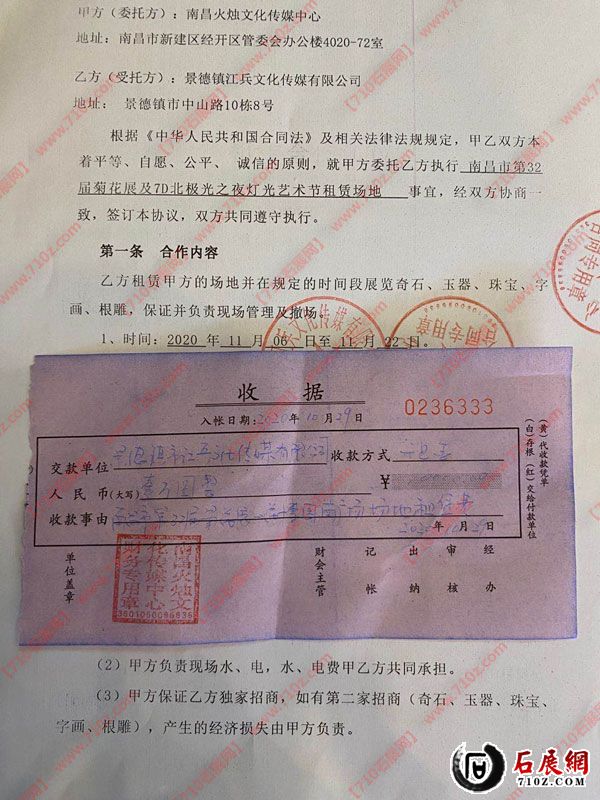 甲方（委托方）：南昌火烛文化传媒中心
地址：南昌市新建区经开区管委会办公楼4020-72室
乙方（受托方）：景德镇江兵文化传媒有限公司
地址： 景德镇市中山路10栋8号
根据《中华人民共和国合同法》及相关法律法规规定，甲乙双方本
着平等、自愿、公平、 诚信的原则，就甲方委托乙方执行 南昌市第32
届菊花展及7D北极光之夜灯光艺术节租赁场地 事宜，经双方协商一
致，签订本协议，双方共同遵守执行。
第一条 合作内容
乙方租赁甲方的场地并在规定的时间段展览奇石、玉器、珠宝、字
画、根雕，保证并负责现场管理及撤场。
1、时间：2020 年 11 月 06 日至 11 月 22 日。
合同专用章
收 据
入帐日期：2020 年 10 月 29 日
0236333
交款单位 景德镇市江兵文化传媒有限公司 收款方式
人民币（大写） 壹万圆整 ￥
收款事由
2020 年 10 月 29 日
单位盖章
南昌火烛文化传媒中心财务专用章
财会主管
记帐
出纳
审核
经办
（白）存根（红）交给付款单位
（黄）代收款凭单
（2）甲方负责现场水、电，水、电费甲乙方共同承担。
（3）甲方保证乙方独家招商，如有第二家招商（奇石、玉器、珠宝、
字画、根雕），产生的经济损失由甲方负责。
【710石展网】
www.710z.com
石展網
710Z.COM